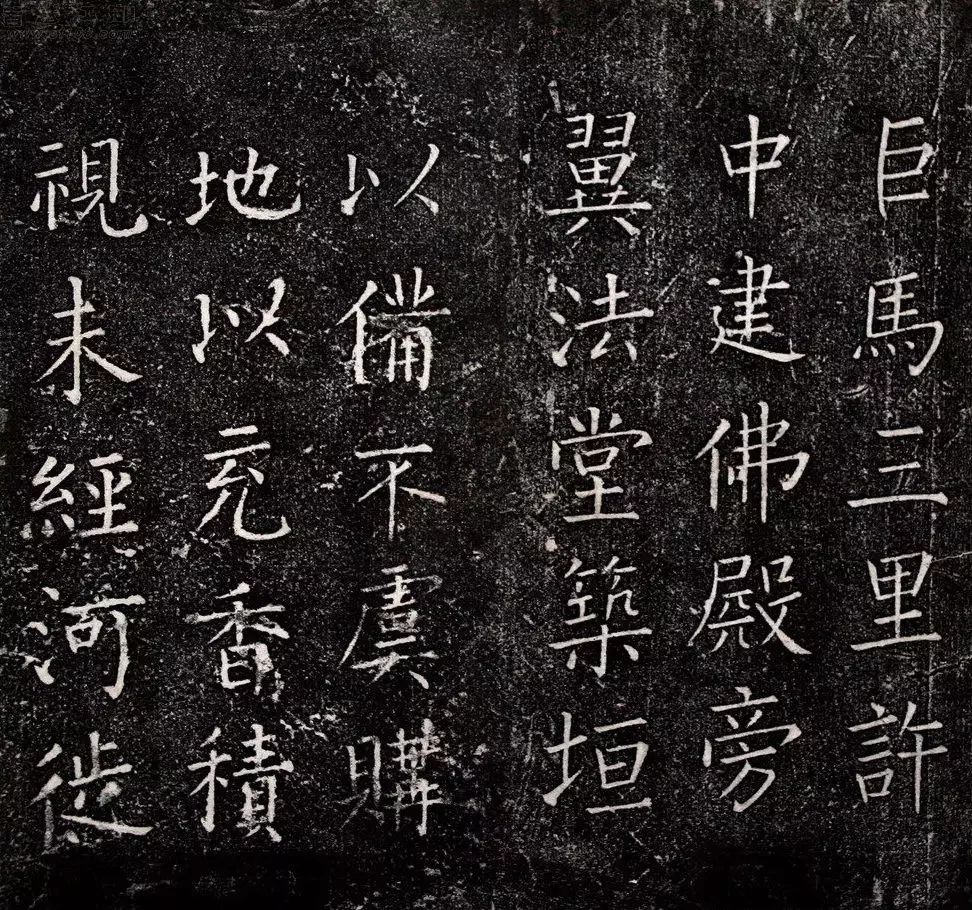 巨馬三里許
中建佛殿旁
翼法堂築垣
以備不虞購
地以充香積
視未經河徙